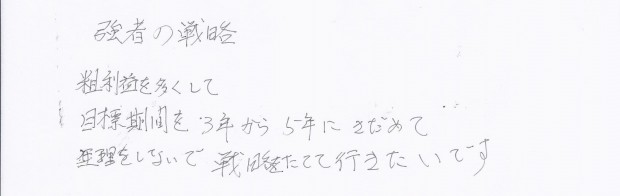 強者の戦略
粗利益を多くして
目標期間を3年から5年にさだめて
無理をしないで戦略をたてて行きたいです